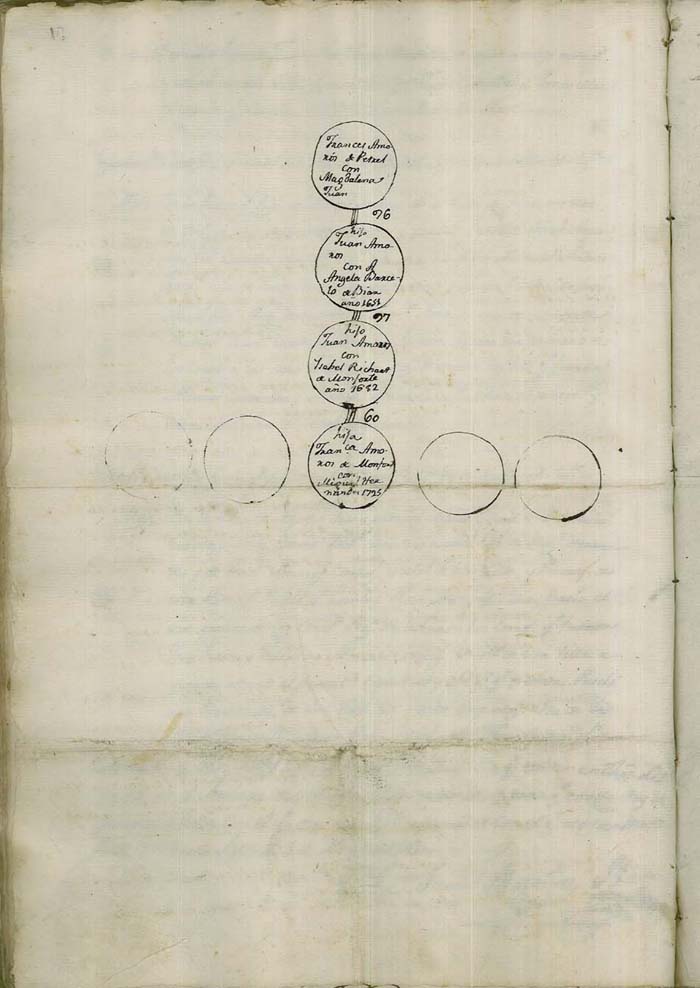 Frances Amo-
ros de Petrel
con
Magdalena
Juan
76
hijo
Juan Amo-
ros
con
Angela Barce-
lo de Biar
año 1651
77
hijo
Juan Amoros
con
Isabel Richart
de Monforte
año 1652
60
hija
Franca Amo-
ros de Monfort
con
Miguel Her
nandes 1725